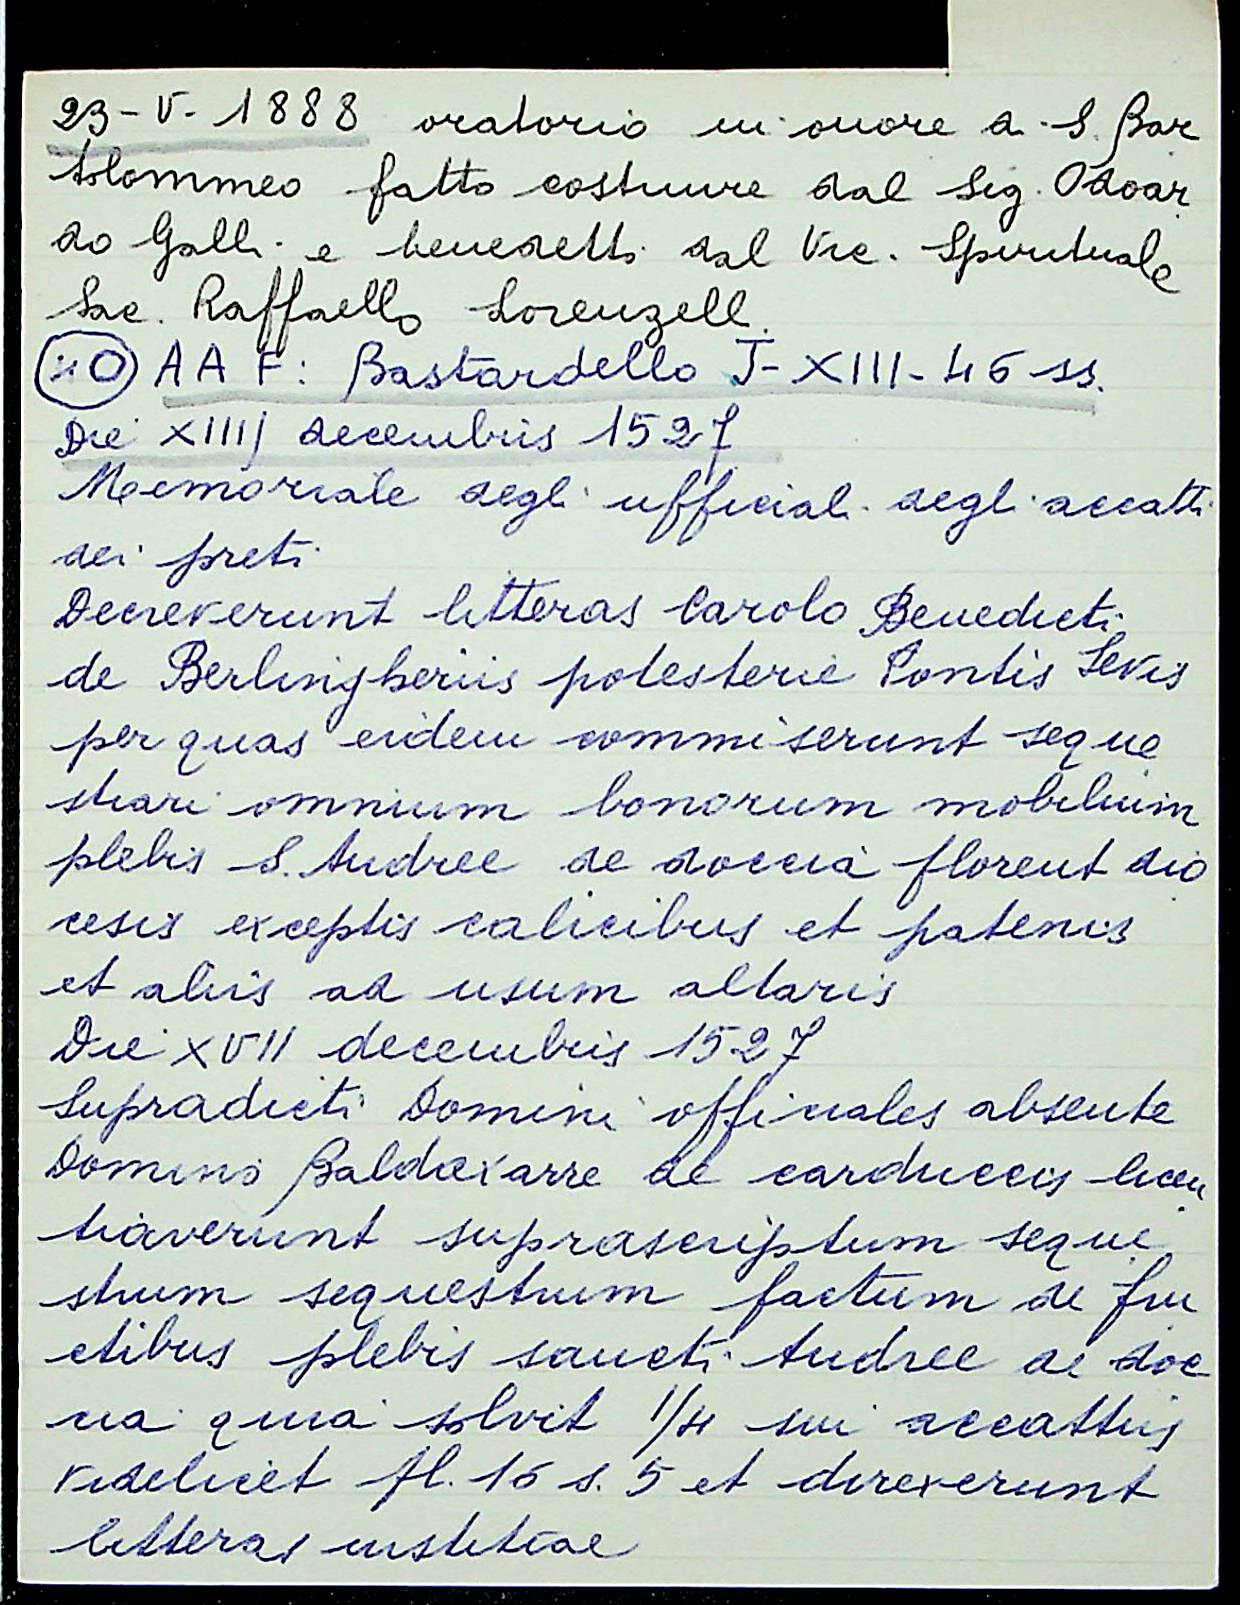 23-V-1888 oratorio in onore di S. Bar
tolommeo fatto costruire dal Sig. Odoar
do Galli e benedetto dal Vic. Spirituale
Sac. Raffaello Lorenzelli.
40 AAF: Bastardello J-XIII-46 ss.
Die XIIIJ decembris 1527
Memoriale degli ufficiali degli accatti
dei preti
Decreverunt litteras Carolo Benedicti
de Berlingheriis potesterie Pontis Levis
per quas eidem commiserunt seque
strari omnium bonorum mobilium
plebis S. Andree de doccia florent dio
cesis exceptis calicibus et patenis
et aliis ad usum altaris
Die XVII decembris 1527
Supradicti Domini officiales absente
Domino Baldaxarre de carduccis licen
tiaverunt suprascriptum seque
strum sequestrum factum de fru
ctibus plebis sancti Andree de doc
cia quia solvit 1/4 sui accattus
videlicet fl. 16 s. 5 et direxerunt
litteras iustitiae